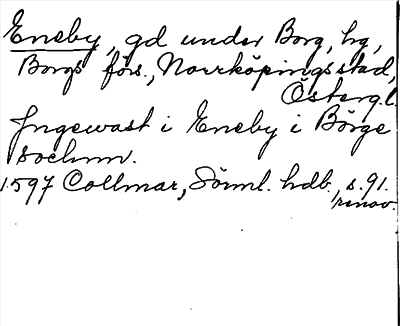 Eneby, gd under Borg, hg,
Borgs förs., Norrköpings stad,
Östergl.
Ingewast i Eneby i Börge
sochnn.
1597 Collmar, Sörml. hdb., s. 91.
renov.